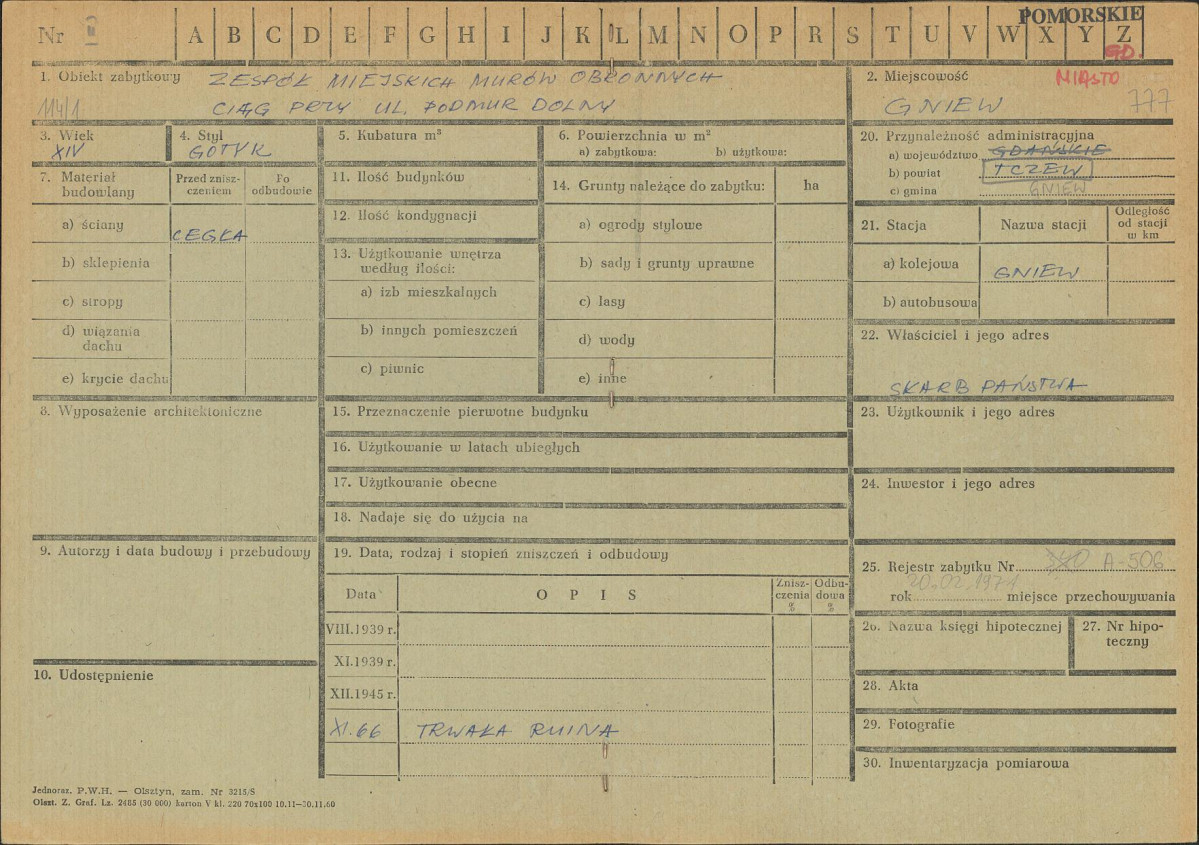 POMORSKIE
Nr A B C D E F G H I J K L M N O P R S T U V W X Y Z
GD.
MIASTO
1. Obiekt zabytkowy ZESPÓŁ MIEJSKICH MURÓW OBRONNYCH
114/1 CIĄG PRZY UL. PODMUR DOLNY
2. Miejscowość
GNIEW 777
3. Wiek
XIV
4. Styl
GOTYK
5. Kubatura m³
6. Powierzchnia w m²
a) zabytkowa: b) użytkowa:
20. Przynależność administracyjna
a) województwo GDAŃSKIE
b) powiat TCZEW
c) gmina GNIEW
7. Materiał budowlany
Przed zniszczeniem
Po odbudowie
a) ściany CEGŁA
b) sklepienia
c) stropy
d) wiązania dachu
e) krycie dachu
11. Ilość budynków
12. Ilość kondygnacji
13. Użytkowanie wnętrza
według ilości:
a) izb mieszkalnych
b) innych pomieszczeń
c) piwnic
14. Grunty należące do zabytku: ha
a) ogrody stylowe
b) sady i grunty uprawne
c) lasy
d) wody
e) inne
21. Stacja Nazwa stacji
Odległość
od stacji
w km
a) kolejowa GNIEW
b) autobusowa
22. Właściciel i jego adres
SKARB PAŃSTWA
8. Wyposażenie architektoniczne
15. Przeznaczenie pierwotne budynku
16. Użytkowanie w latach ubiegłych
17. Użytkowanie obecne
18. Nadaje się do użycia na
23. Użytkownik i jego adres
24. Inwestor i jego adres
9. Autorzy i data budowy i przebudowy
19. Data, rodzaj i stopień zniszczeń i odbudowy
Data OPIS
Zniszczenia %
Odbudowa %
VIII.1939 r.
XI.1939 r.
XII.1945 r.
XI.66 TRWAŁA RUINA
25. Rejestr zabytku Nr A-506
20.02.1971
rok miejsce przechowywania
26. Nazwa księgi hipotecznej
27. Nr hipoteczny
10. Udostępnienie
28. Akta
29. Fotografie
30. Inwentaryzacja pomiarowa
Jednoraz. P.W.H. — Olsztyn, zam. Nr 3215/S
Olszt. Z. Graf. Lz. 2485 (30 000) karton V kl. 220 70x100 10.11—30.11.60